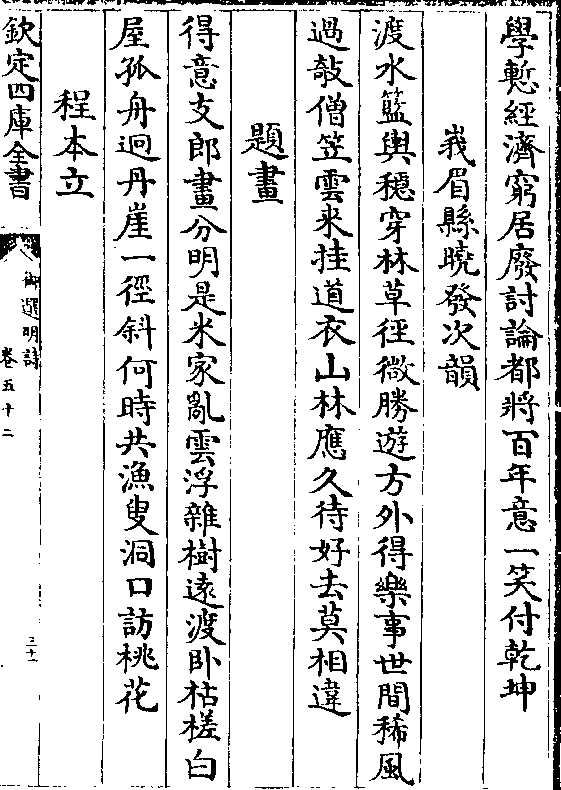 學慙經濟窮居廢討論都將百年意一笑付乾坤
峩眉縣曉發次韻
渡水籃輿穩穿林草徑微勝遊方外得樂事世間稀風
過敧僧笠雲來挂道衣山林應久待好去莫相違
題畫
得意支郎畫分明是米家亂雲浮雜樹遠渡卧枯槎白
屋孤舟迥丹崖一徑斜何時共漁叟洞口訪桃花
程本立
欽定四庫全書
御選明詩
卷五十二
三十一